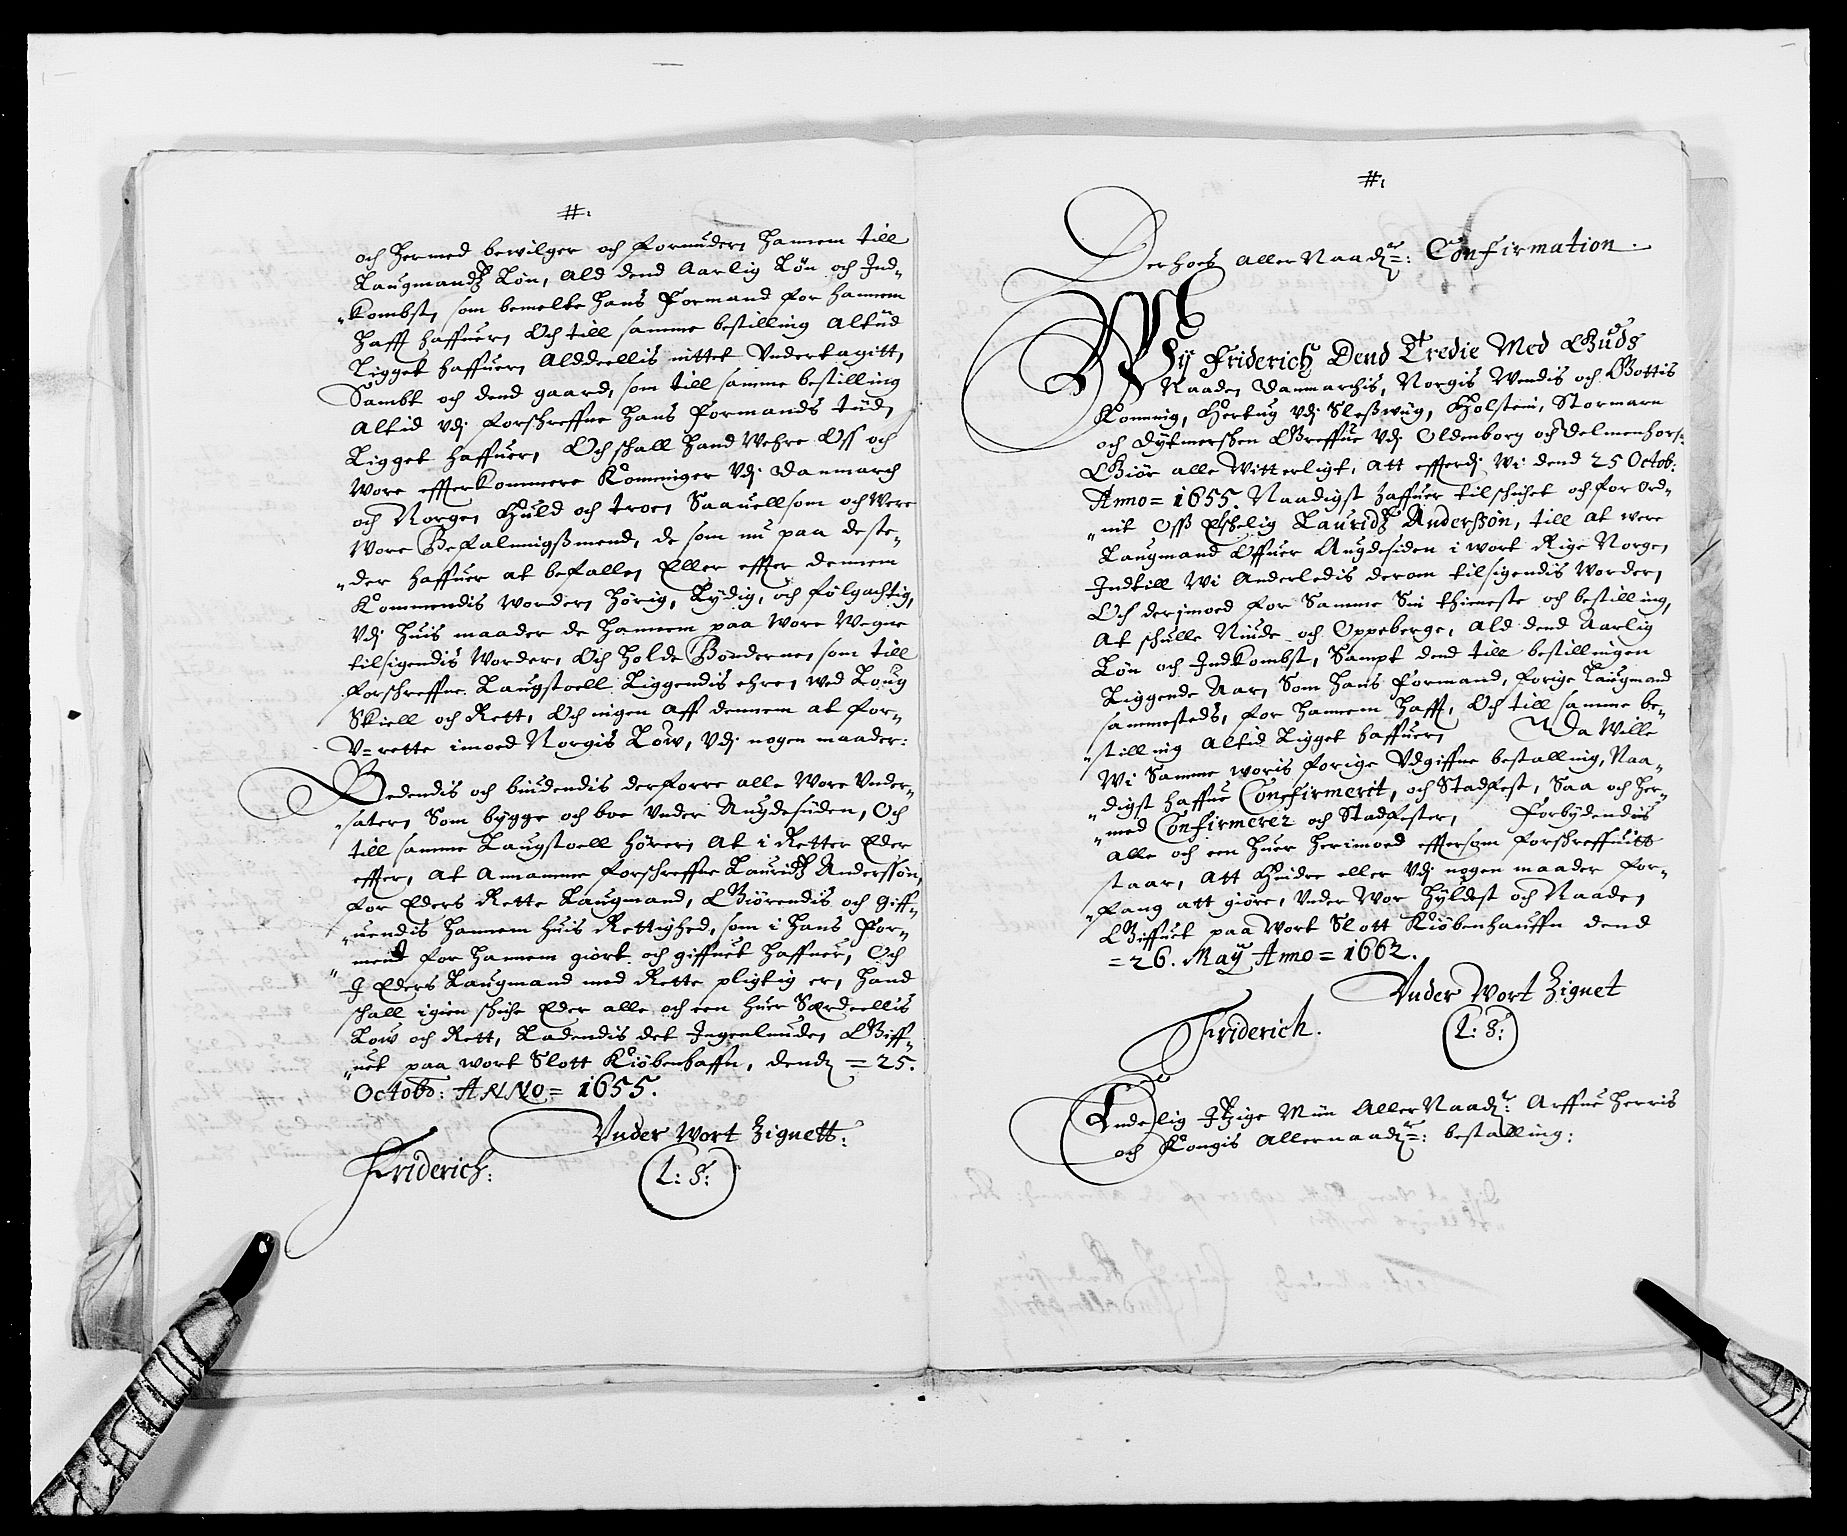 #:
och hermed bewilger och forunder, hannem till
Laugmandß Løn, ald dend Aarlig Løn och Ind-
„kombst, som bemelte hans Formand for hannem
hafft haffuer, Och till samme bestilling altiid
Ligget haffuer, Alddeellis intet Undertagitt,
Sambt och dend gaard, som till samme bestilling
altid vdj forschreffne hans formands tiid,
Ligget haffuer, Och schall hand Wehre Oss och
Wore effterkommere Konninger vdj Danmarch
och Norge, Huld och troe, Saauellsom och Were
Wore Befalningßmend, de som nu paa deste-
„der haffuer at befalle, Eller effter dennem
Kommendis Worder, hørig, Lydig, och følgachtig,
Vdj huis maader de hannem paa Wore Wegne
tilsigendis Worder, Och holde Bønderne, som till
forschreffne Laugstoell Liggendis ehre, wed Loug
Skiell och Rett, Och ingen aff dennem at for-
V-rette imoed Norgis Low, Vdj nogen maader:
Bedendis och biudendis derforre alle Wore Vnder-
„sater, Som bygge och boe Vnder Augdesiiden, Och
till samme Laugstoell hører, At i Retter Eder
effter, at Annamme forschreffne Lauridß Anderssøn,
for Eders Rette Laugmand, Giørendis och giff-
„uendis hannem huis Rettighed, som i hans For-
mend for hannem giort och giffuet haffuer, Och
„I Eders Laugmand med Rette pligtig er, hand
schall igien schiche Eder alle och een huer Særdeellis
Low och Rett, Ladendis det Ingenlunde, Giff-
„uet paa wort Slott Kiøbenhaffn, dend = 25.
Octobr: ANNO = 1655.
Vnder Wort Zignett:
Friderich: L: S:
#:
Derhoes Aller Naadr=: Confirmation.
Wy Friderich Dend Tredie Med Guds
Naade, Danmarchis, Norgis Wendis och Gottis
Konning, Hertug vdj Sleßwiig, Holsten, Stormarn
och Dytmerschen Greffue vdj Oldenborg och Delmenhors:
Giør alle Witterligt, Att efftersom Wi dend 25 Octob:
Anno = 1655. Naadigst haffuer tilschichet och for Ord-
„nit Oss Elschelig Lauridß Anderssøn, till at were
Laugmand Offuer Augdesiden i wort Rige Norge,
Indtill Wi Anderledis derom tilsigendis Worder,
Och derimoed for Samme Sin thieneste och bestilling,
At schulle Niude och Oppeberge, Ald dend Aarlig
Løn och Indkombst, Sampt dend till bestillingen
Liggende Aar, Som hans formand, forige Laugmand
sammesteds, for hannem hafft, Och till samme be-
„stilling altid Ligget haffuer, Da Wille
Wi Samme woris forige Vdgiffne bestalling, Naa-
„digst haffue Confirmerit, och Stadfest, Saa och her-
„med Confirmerer och Stadfester, Forbydendiis
alle och een huer herimoed efftersom forschreffuitt
staar, Att hindre eller vdj nogen maader for-
„fang att giøre, Under Wor hyldest och Naade,
Giffuet paa Wort Slott Kiøbenhauffn dend
= 26. May Anno = 1662.
Vnder Wort Zignet
Friderich. L: S:
Endelig Itzige Min Aller Naadr: Arffue herris
och Kongis Allernaadr=: bestalling: